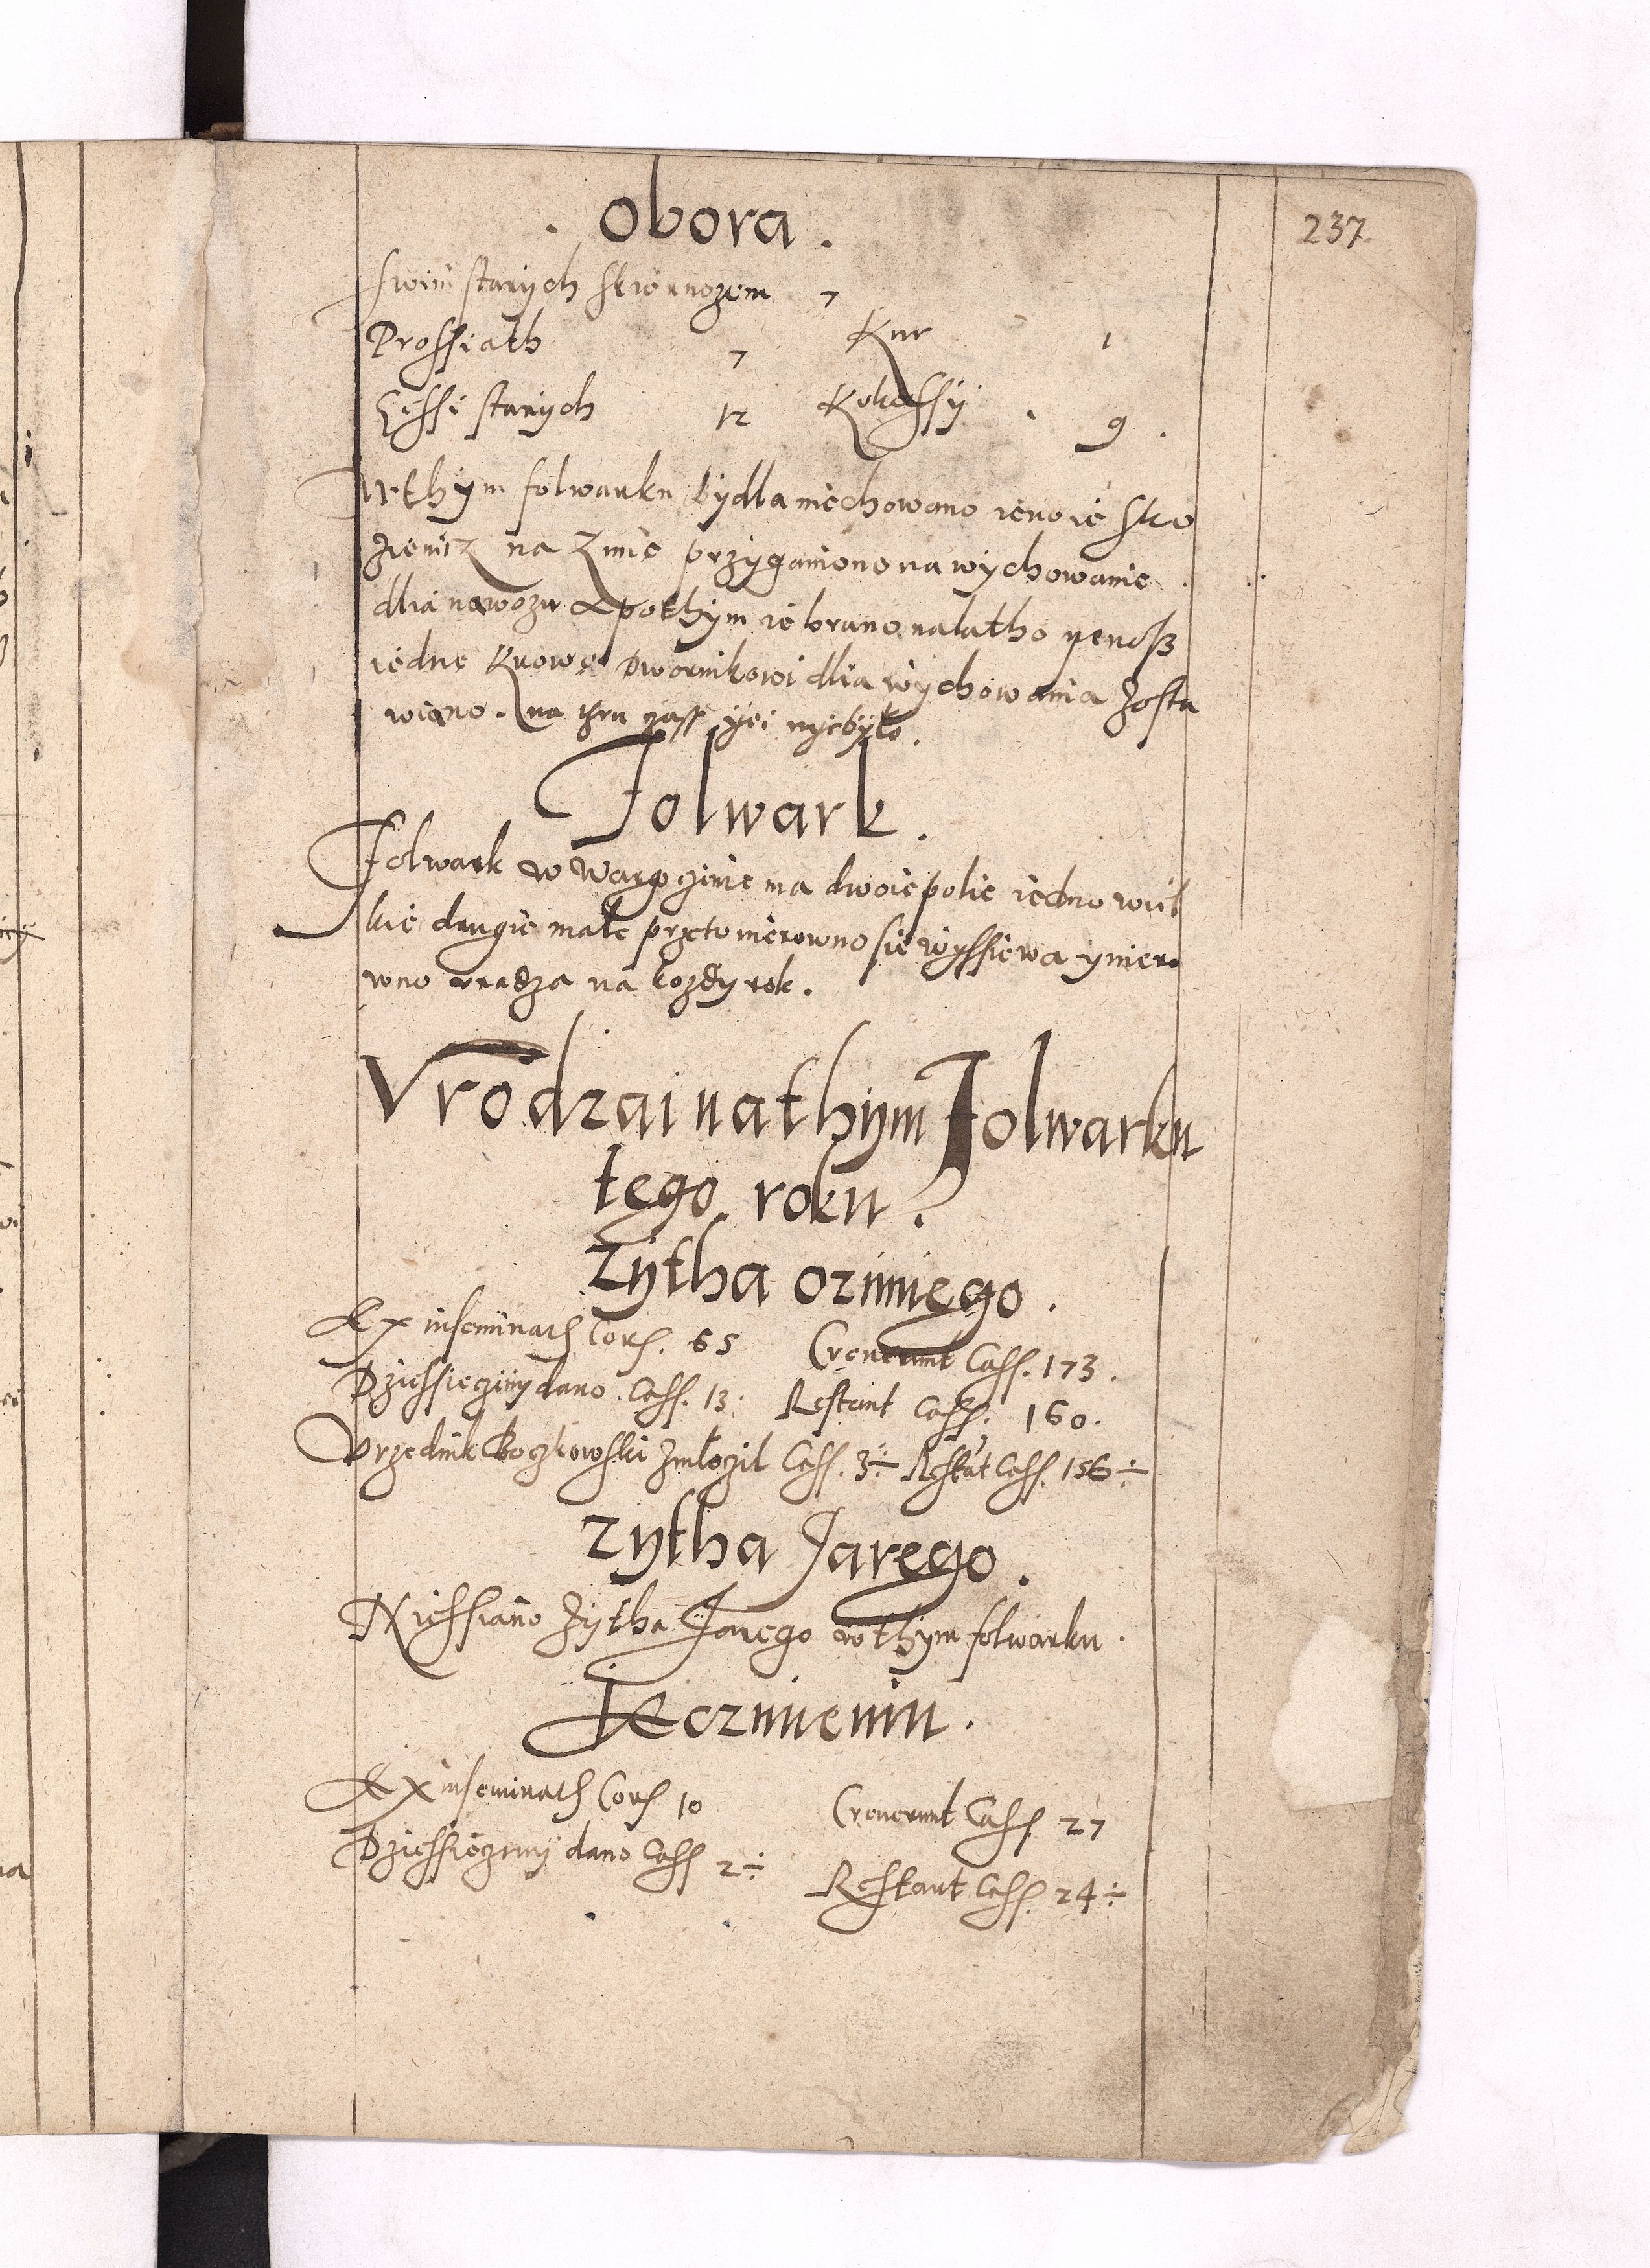 237
. obora .
Swini starych skiernozem 7
Prossiath 7 Kur 1
Gęssi starych 12 Kokossy . 9 .
W thym folwarku bydla niechowano ieno ie sko
zienicz na Zimę przyganiono na wychowanie
dlia nawozu a pothym ie brano na latho yenosz
iednę Krowę Dwornikowi dlia wychowania zosta
wiano . na then czass yei nyebyło .
Folwark .
Folwark w Wargoczinie ma dwoie polie iedno wiel
kie drugie małe przeto nierowno się wyssiewa y niero
wno vradza na kozdy rok .
Vrodzai na thym Folwarku
tego roku .
Zytha ozimiego .
Ex inseminatis Cor. 65 Creverunt Cass. 173 .
Dziessięciny dano Cass. 13 . Restant Cass. 160 .
Vrzędnik Boczkowski zmłoczil Cass. 3÷ Restat Cass. 156÷
Zytha Jarego .
Niessiano zytha Jarego w thym folwarku .
Jęczmieniu .
Ex inseminatis Cor. 10 Creverunt Cass. 27
Dziessięciny dano Cass 2÷ Restant Cass. 24÷